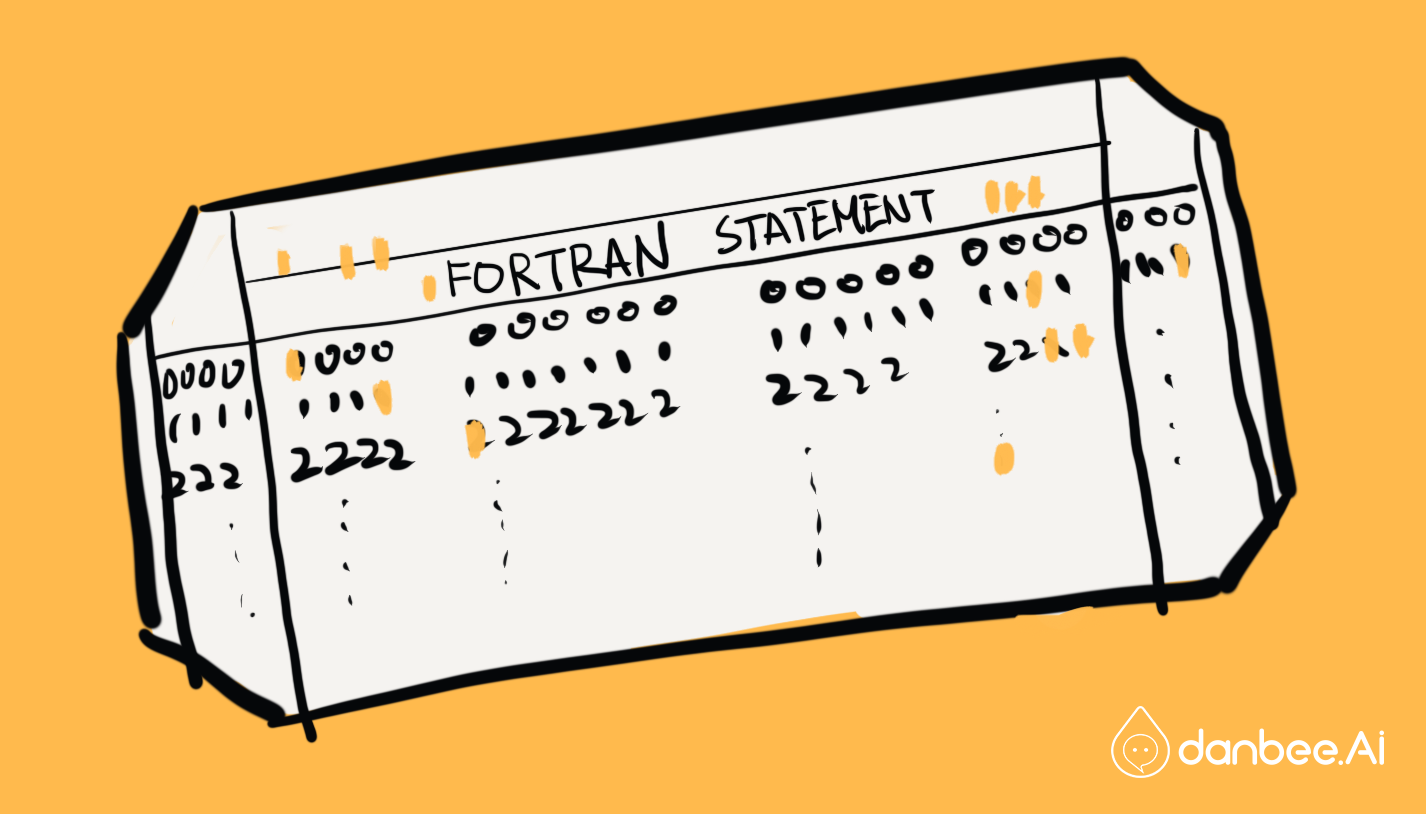 FORTRAN STATEMENT
0000 000 000000 00000 0000 000
1111 111 1111111 111111 11 1 111
222 2222 222222 2222 22
danbee.Ai